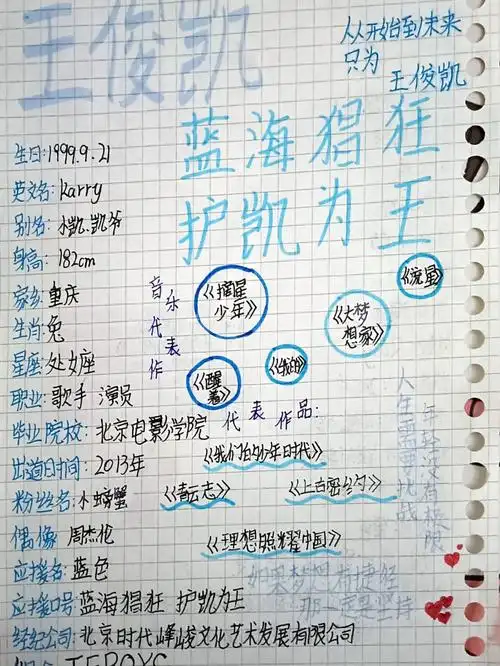 王俊凯
从开始到未来
只为
王俊凯
蓝海猖狂
护凯为王
生日:1999.9.21
英文名:Karry
别名:小凯、凯爷
身高:182cm
家乡:重庆
生肖:兔
星座:处女座
职业:歌手 演员
毕业院校:北京电影学院
出道日时间:2013年
粉丝名:小螃蟹
偶像 周杰伦
应援名:蓝色
应援口号:蓝海猖狂 护凯为王
经纪公司:北京时代峰峻文化艺术发展有限公司
TFBOYS
音乐代表作
《摘星少年》
《流星》
《大梦想家》
《醒着》
《我的》
代表作品:
《我们的少年时代》
《青云志》
《上古密约》
《理想照耀中国》
人生需要挑战
年轻没有极限
如果梦想有捷径
那一定是坚持